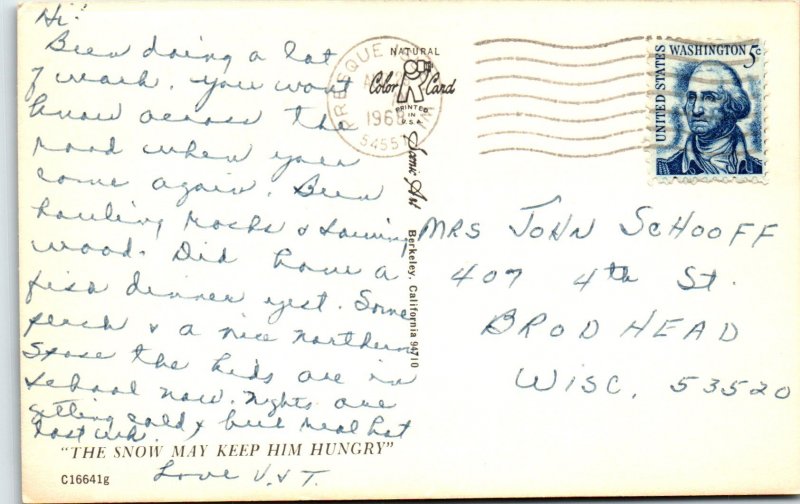 Hi
Been doing a lot
of work. you wont
know across the
road when your
come again. Been
hauling rocks & sawing
wood. Did have a
fish dinner yest. Some
perch & a nice northern
Spose the kids are in
school now. Nights are
getting cold & but real hot
last wk.
Love V. & T.
"THE SNOW MAY KEEP HIM HUNGRY"
C16641g
NATURAL
Color Card
PRINTED
IN
U.S.A.
Scenic Art
Berkeley, California 94710
PRESQUE
1968
5455
UNITED STATES
WASHINGTON 5c
MRS JOHN SCHOOFF
407 4th St.
BRODHEAD
WISC. 53520